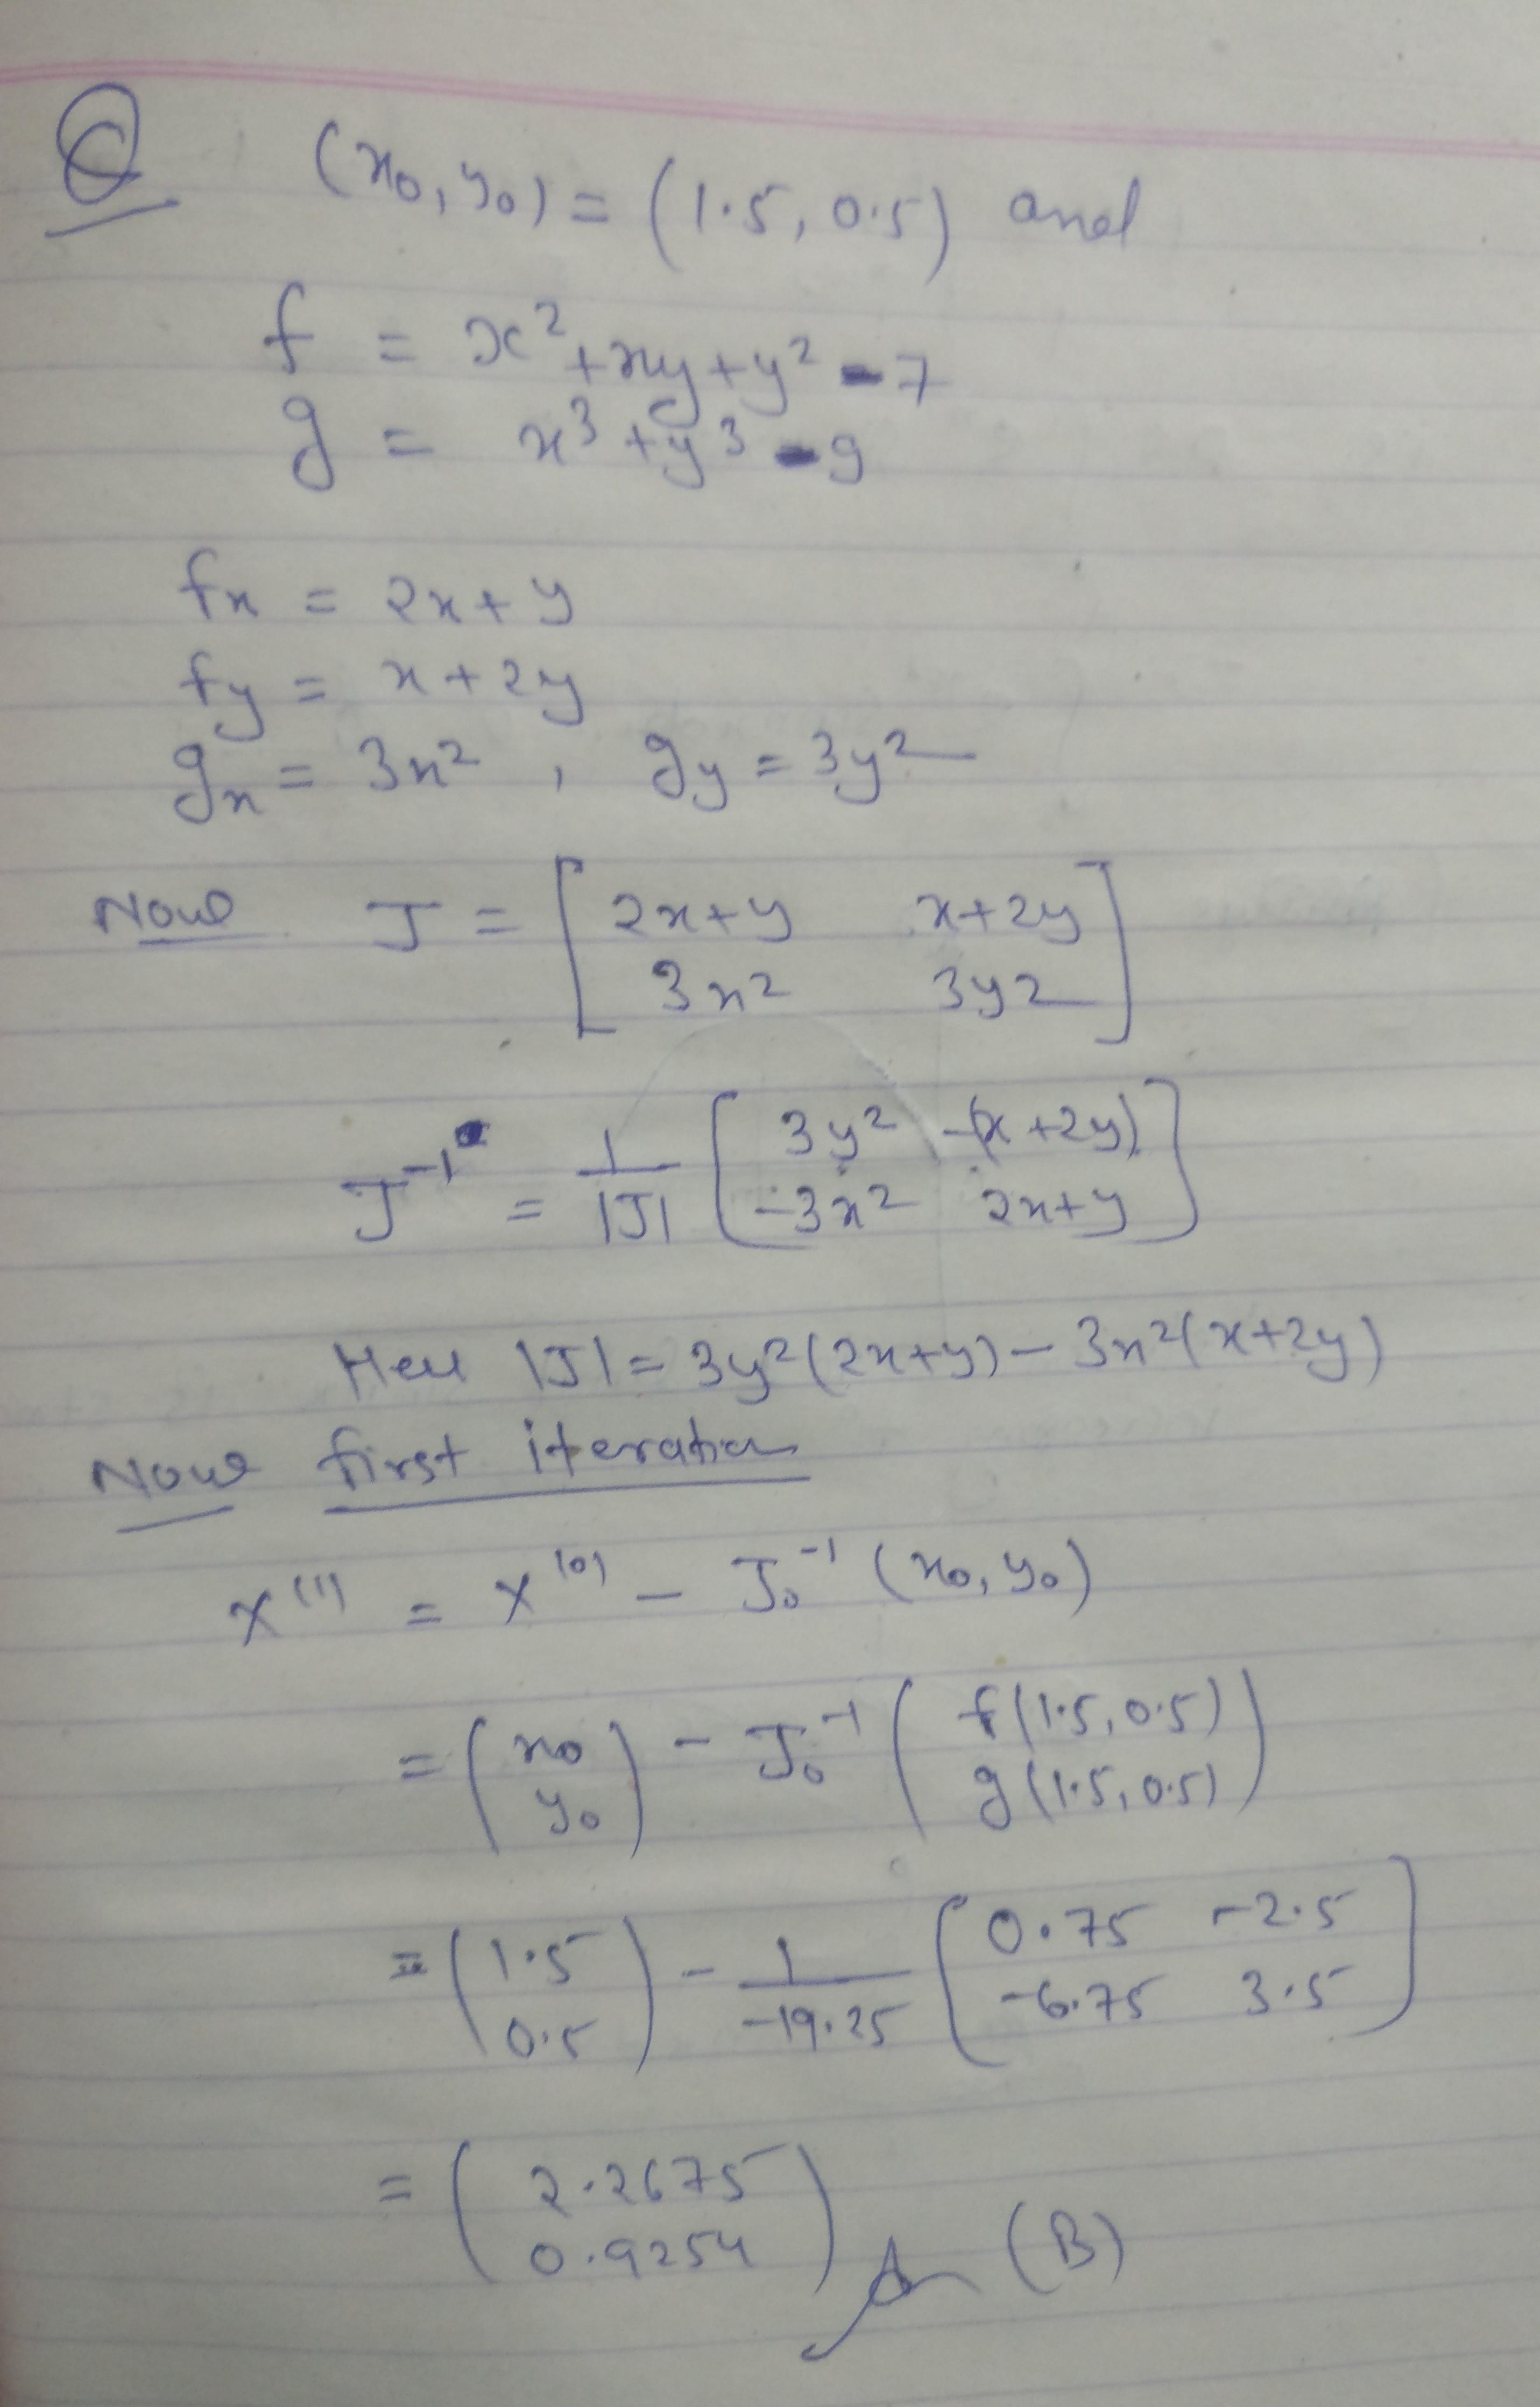 Q (x₀, y₀) = (1.5, 0.5) and
f = x² + xy + y² - 7
g = x³ + y³ - 9
fx = 2x + y
fy = x + 2y
gx = 3x² , gy = 3y²
Now J = [ 2x+y x+2y
3x² 3y² ]
J⁻¹ = 1/|J| [ 3y² -(x+2y)
-3x² 2x+y ]
Here |J| = 3y²(2x+y) - 3x²(x+2y)
Now first iteration
X⁽¹⁾ = X⁽⁰⁾ - J₀⁻¹ (x₀, y₀)
= ( x₀
y₀ ) - J₀⁻¹ ( f(1.5, 0.5)
g(1.5, 0.5) )
= ( 1.5
0.5 ) - 1/-19.25 [ 0.75 -2.5
-6.75 3.5 ]
= ( 2.2675
0.9254 ) (B)